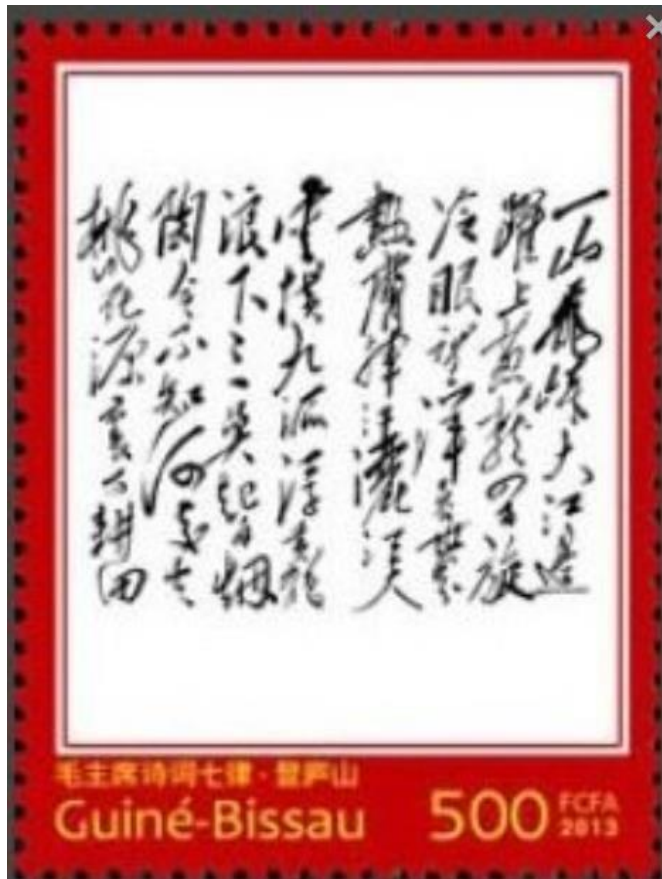 一山飛峙大江邊
躍上葱蘢四百旋
冷眼望洋看世界
熱膚揮汗灑江天
雲橫九派浮黃鶴
浪下三吳起白烟
陶令不知何處去
桃花源裏可耕田
毛主席诗词七律·登庐山
Guiné-Bissau 500 FCFA
2013